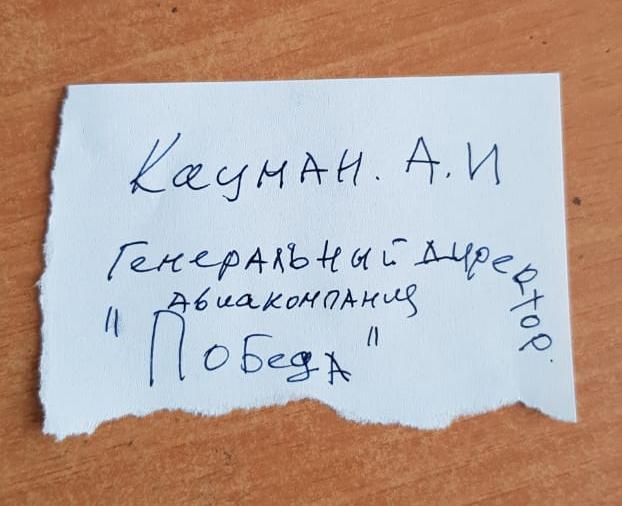 Кауман. А.И
Генеральный директор.
Авиакомпания
"Победа"